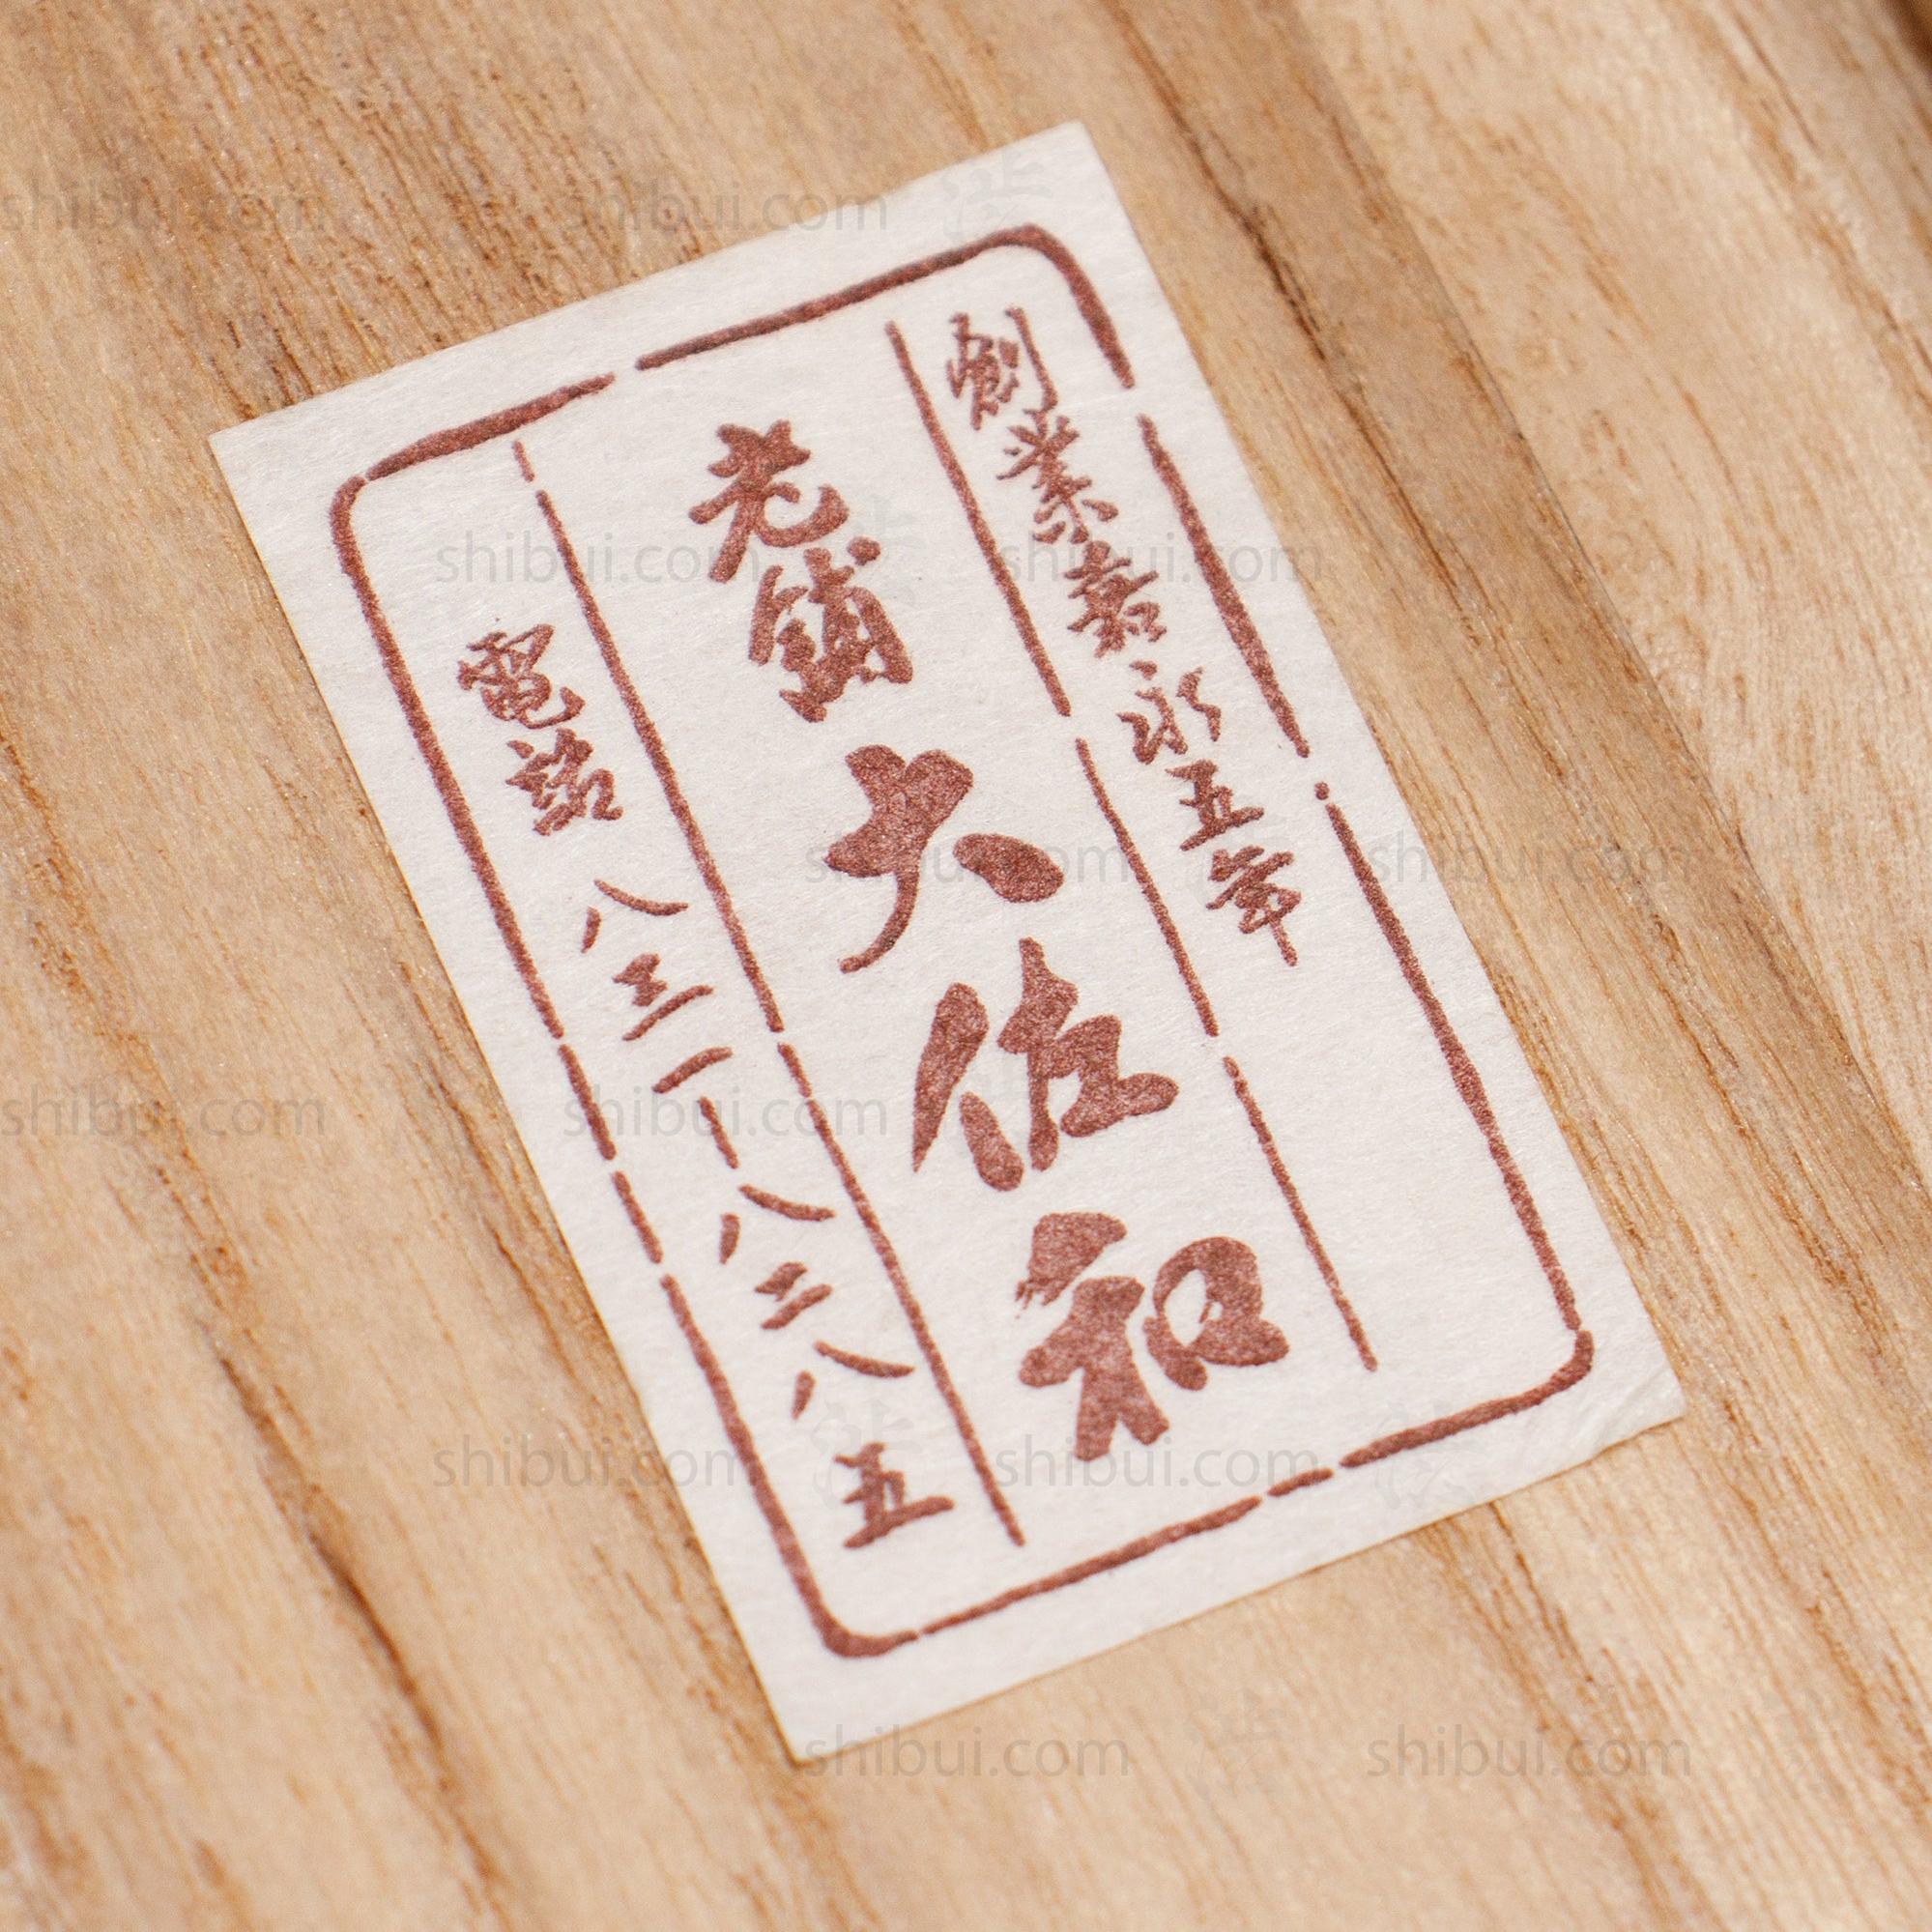 創業嘉永五年
老舗 大佐和
電話 八三一ー八二八五
shibui.com
shibui.com
shibui.com
shibui.com
shibui.com
shibui.com
shibui.com
shibui.com
shibui.com
shibui.com
shibui.com
shibui.com